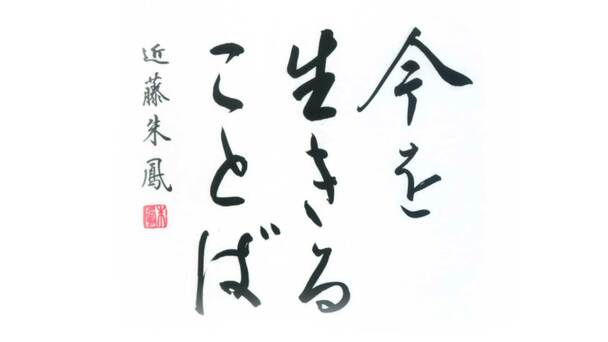 今を
生きる
ことば
近藤朱鳳